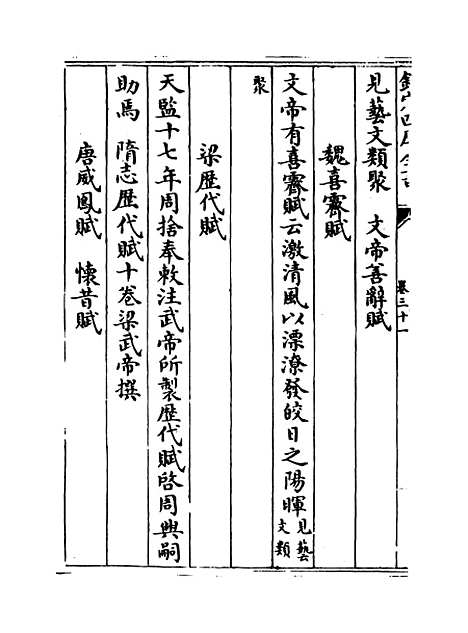 欽定四庫全書 卷三十一
見藝文類聚 文帝善辭賦
魏喜霽賦
文帝有喜霽賦云激清風以漂潦發皎日之陽暉見藝文類
聚
梁歴代賦
天監十七年周捨奉敕注武帝所製歴代賦啓周興嗣
助焉 隋志歴代賦十卷梁武帝撰
唐威鳳賦 懷昔賦